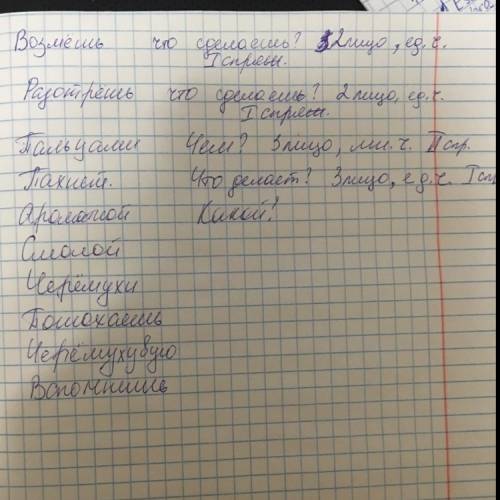 Возмёшь что сделаешь? 2 лицо, ед.ч.
I спряж.
Разотрёшь что сделаешь? 2 лицо, ед.ч.
I спряж.
Пальцами Чем? 3 лицо, мн.ч. II спр.
Пахнет. Что делает? 3 лицо, ед.ч. I спр
Ароматной Какой?
Смолой
Черёмухи
Черёмухувую
Вспомнишь